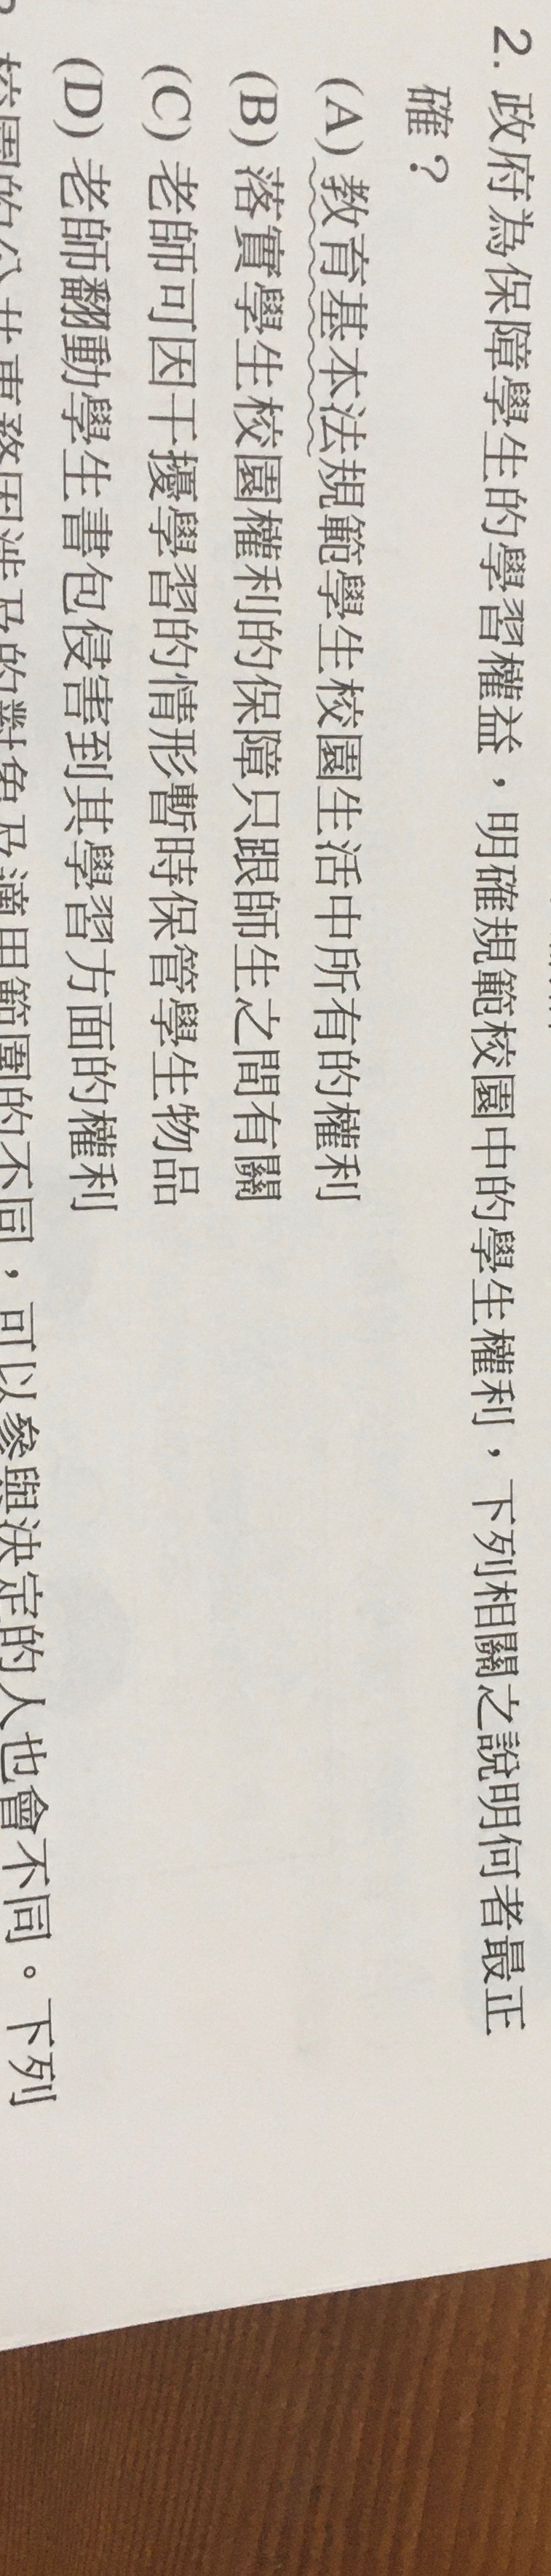 2. 政府為保障學生的學習權益，明確規範校園中的學生權利，下列相關之說明何者最正
確？
(A) 教育基本法規範學生校園生活中所有的權利
(B) 落實學生校園權利的保障只跟師生之間有關
(C) 老師可因干擾學習的情形暫時保管學生物品
(D) 老師翻動學生書包侵害到其學習方面的權利
校園的公共事務因涉及的對象及適用範圍的不同，可以參與決定的人也會不同。下列